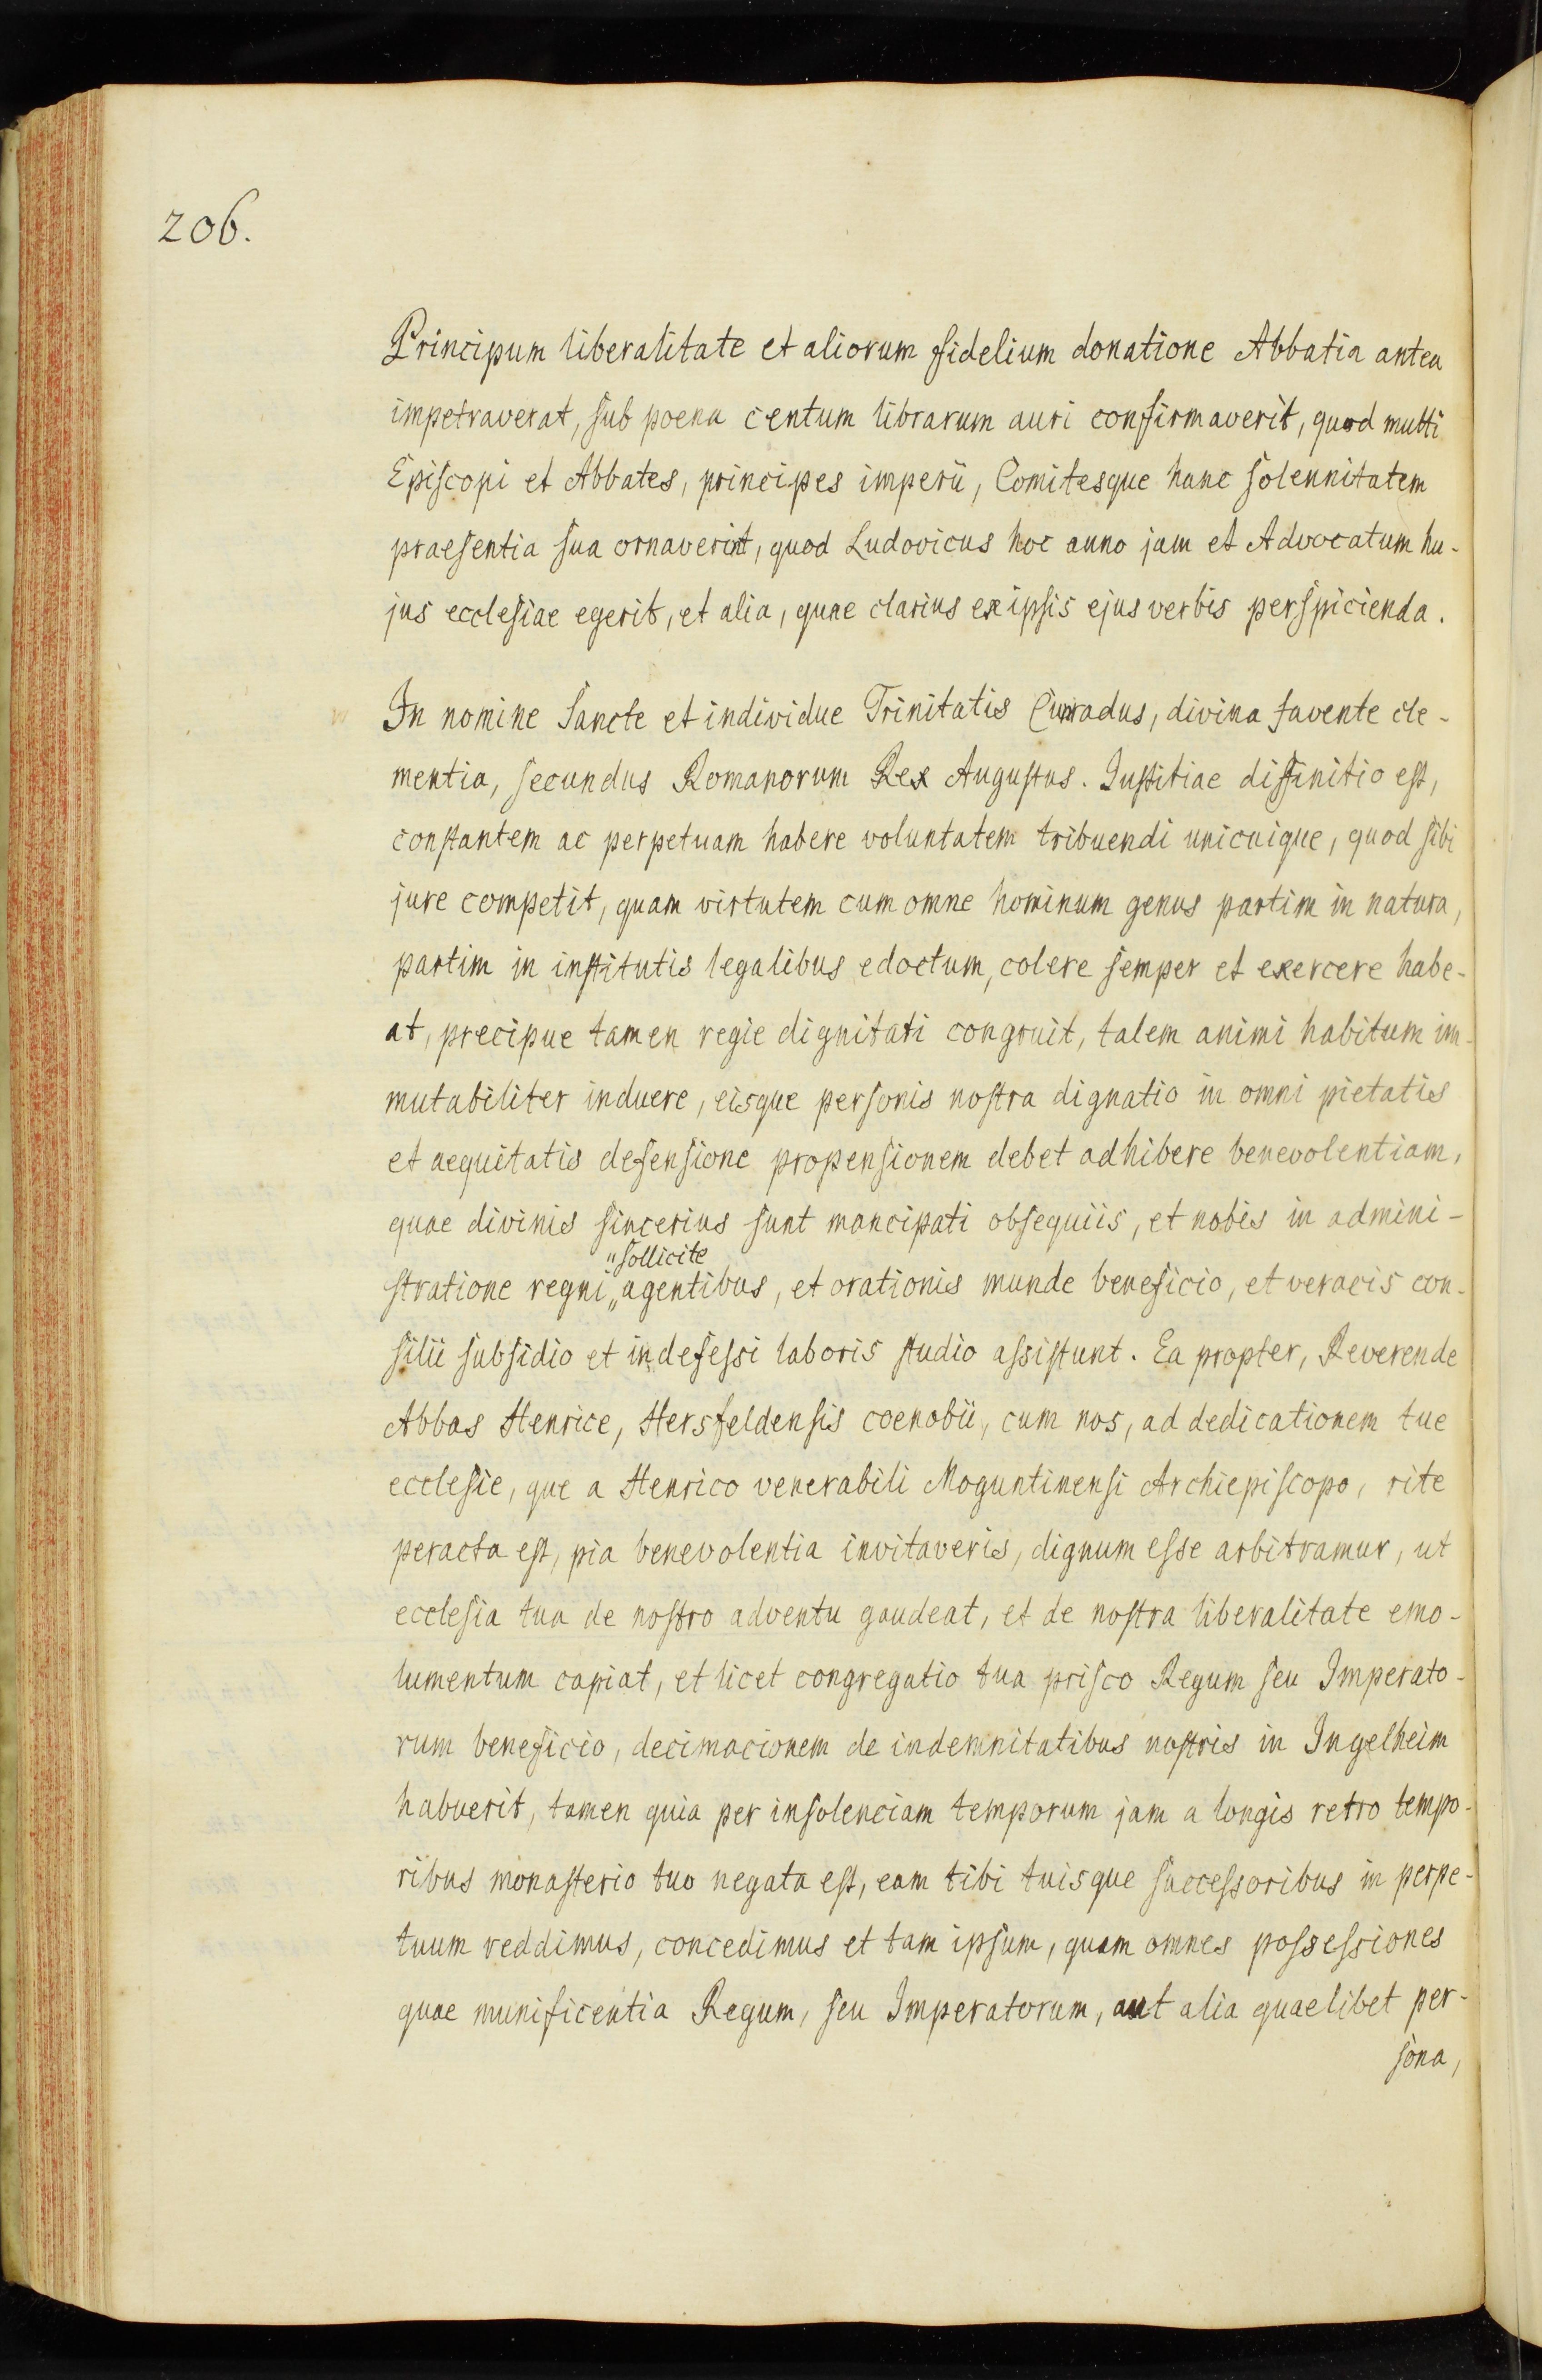 206.
Principum liberalitate et aliorum fidelium donatione Abbatia antea
impetraverat, sub poena centum librarum auri confirmaverit, quod multi
Episcopi et Abbates, principes imperii, Comitesque hanc solennitatem
praesentia sua ornaverint, quod Ludovicus hoc anno jam et Advocatum hu-
jus ecclesiae egerit, et alia, quae clarius ex ipsis ejus verbis perspicienda.
In nomine Sancte et individue Trinitatis Cunradus, divina favente cle-
mentia, secundus Romanorum Rex Augustus. Justitiae diffinitio est,
constantem ac perpetuam habere voluntatem tribuendi unicuique, quod sibi
jure competit, quam virtutem cum omne hominum genus partim in natura,
partim in institutis legalibus edoctum, colere semper et exercere habe-
at, precipue tamen regie dignitati congruit, talem animi habitum im-
mutabiliter induere, eisque personis nostra dignatio in omni pietatis
et aequitatis defensione propensionem debet adhibere benevolentiam,
quae divinis sincerius sunt mancipati obsequiis, et nobis in admini-
"sollicite
stratione regni „agentibus, et orationis munde beneficio, et veracis con-
silii subsidio et indefessi laboris studio assistunt. Ea propter, Reverende
Abbas Henrice, Hersfeldensis coenobii, cum nos, ad dedicationem tue
ecclesie, que a Henrico venerabili Moguntinensi Archiepiscopo, rite
peracta est, pia benevolentia invitaveris, dignum esse arbitramur, ut
ecclesia tua de nostro adventu gaudeat, et de nostra liberalitate emo-
lumentum capiat, et licet congregatio tua prisco Regum seu Imperato-
rum beneficio, decimacionem de indemnitatibus nostris in Ingelheim
habuerit, tamen quia per insolenciam temporum jam a longis retro tempo-
ribus monasterio tuo negata est, eam tibi tuisque successoribus in perpe-
tuum reddimus, concedimus et tam ipsum, quam omnes possessiones
quae munificentia Regum, seu Imperatorum, aut alia quaelibet per-
sona,